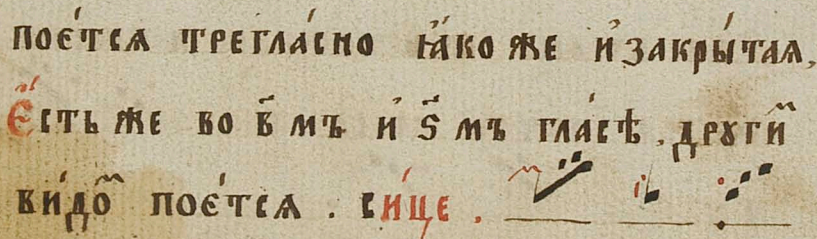 пое́тсѧ трегла́сно ꙗ҆́коже и҆ закры́таѧ,
Є҆́сть же во в҃мъ и҆ ѕ҃мъ гла́сѣ. другⷨи
ви́доⷨ пое́тсѧ. си́це.